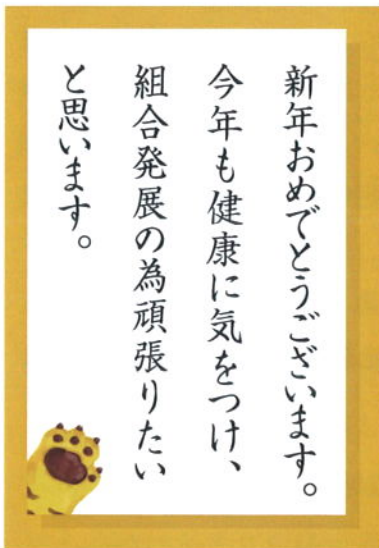 新年おめでとうございます。
今年も健康に気をつけ、
組合発展の為頑張りたい
と思います。